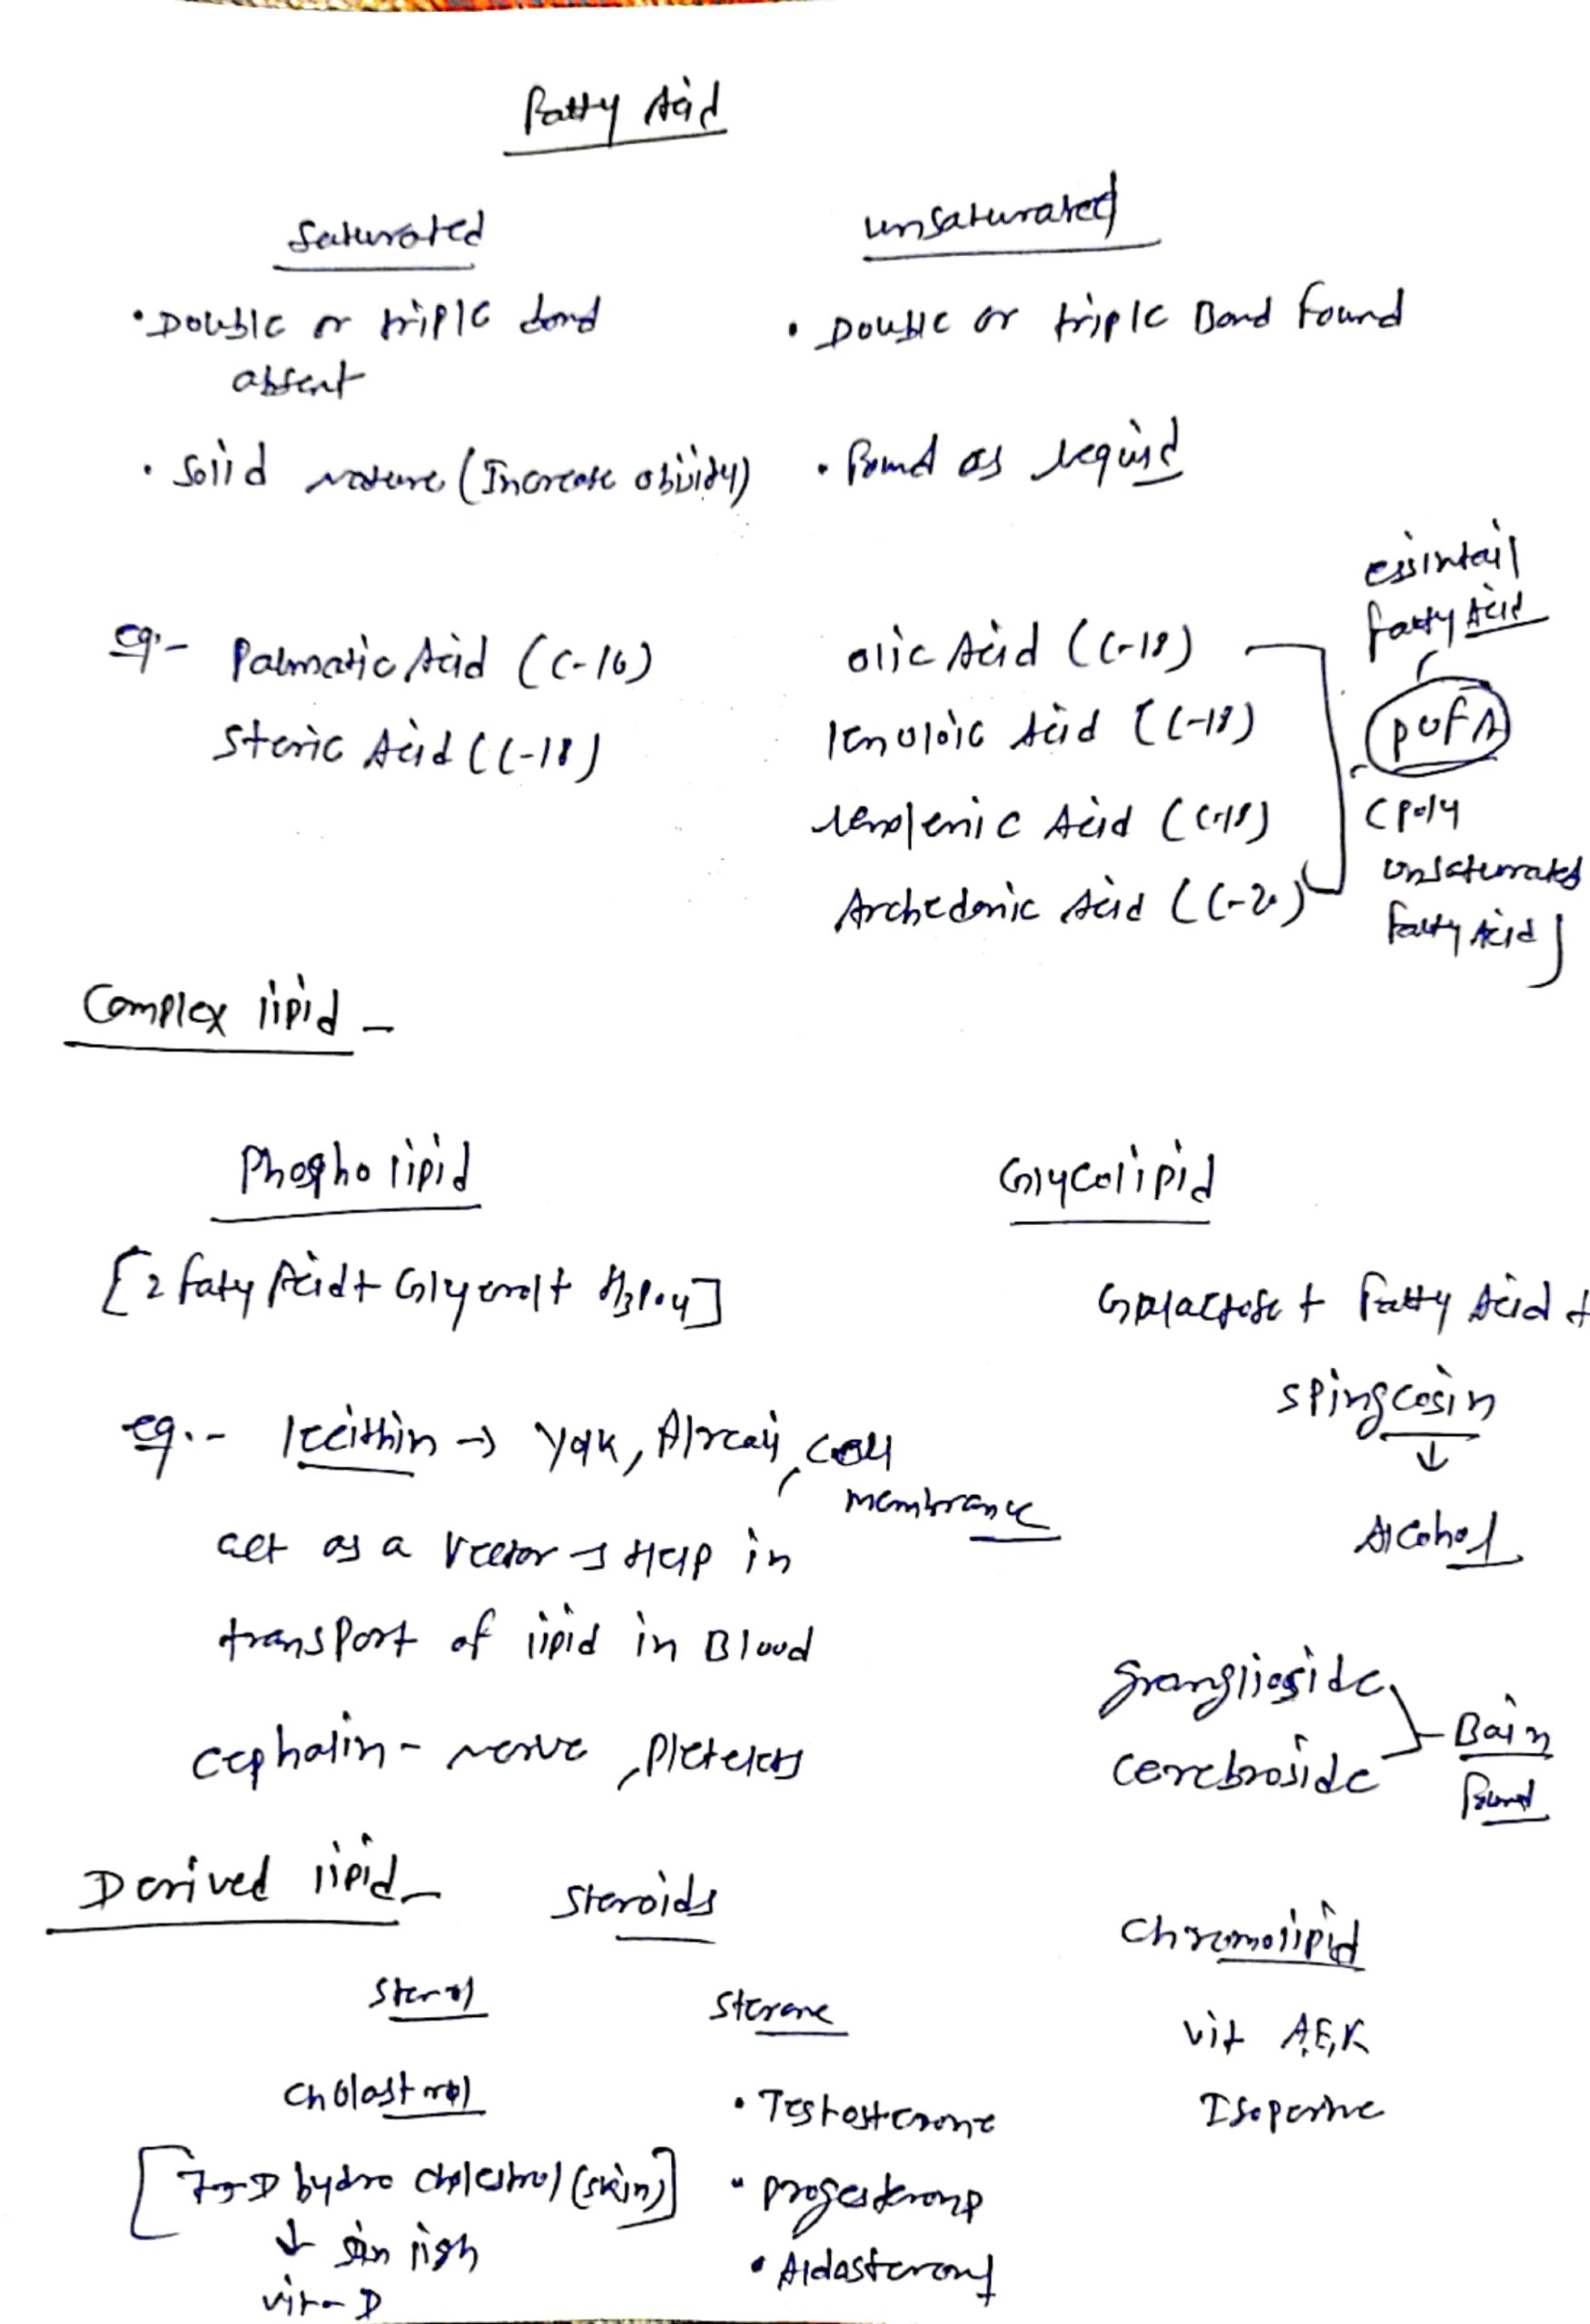 Fatty Acid
Saturated
• Double or triple bond
absent
• Solid nature (Increase obisidy)
eg:- Palmatic Acid (C-16)
Steric Acid (C-18)
unsaturated
• Double or triple Bond found
• Found as liequid
olic Acid (C-18)
lenoloic Acid (C-18)
lenolenic Acid (C-18)
Archedonic Acid (C-20)
essintail
fatty Acid
PUFA
(Poly
unsaturated
fatty Acid)
Complex lipid -
Phospho lipid
[2 faty Acid + Glyerol + H3PO4]
eg.- lecithin → Yak, Alrcali, cell
membrane
act as a vector → Help in
transport of lipid in Blood
cephalin - nerve, Pletelets
Glycolipid
Galactose + fatty Acid +
spingcosin
↓
Alcohol
granglioside
cerebroside
Bain
Found
Derived lipid -
Steroids
Sterol
Cholastrol
[7→D hydro cholestrol (skin)]
↓ sin ligh
vit-D
Sterone
• Testosterone
• Progesterone
• Aldosterone
Chromolipid
vit A,E,K
Isoperine